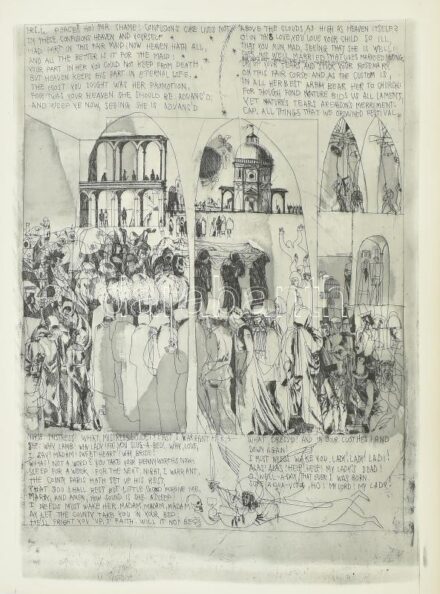 FRI. L. PEACE, HO! FOR SHAME! CONFUSION'S CURE LIVES NOT
IN THESE CONFUSIONS. HEAVEN AND YOURSELF
HAD PART IN THIS FAIR MAID; NOW HEAVEN HATH ALL,
AND ALL THE BETTER IS IT FOR THE MAID:
YOUR PART IN HER YOU COULD NOT KEEP FROM DEATH
BUT HEAVEN KEEPS HIS PART IN ETERNAL LIFE.
THE MOST YOU SOUGHT WAS HER PROMOTION,
FOR 'TWAS YOUR HEAVEN SHE SHOULD BE ADVANC'D:
AND WEEP YE NOW, SEEING SHE IS ADVANC'D
ABOVE THE CLOUDS, AS HIGH AS HEAVEN ITSELF?
O! IN THIS LOVE, YOU LOVE YOUR CHILD SO ILL,
THAT YOU RUN MAD, SEEING THAT SHE IS WELL:
MARRIED THAT LIVES MARRIED LONG;
DRY UP YOUR TEARS, AND STICK YOUR ROSEMARY
ON THIS FAIR CORSE; AND AS THE CUSTOM IS,
IN ALL HER BEST ARRAY BEAR HER TO CHURCH:
FOR THOUGH FOND NATURE BIDS US ALL LAMENT,
YET NATURE'S TEARS ARE REASON'S MERRIMENT.
CAP. ALL THINGS THAT WE ORDAINED FESTIVAL,
MISTRESS! WHAT, MISTRESS! JULIET! FAST, I WARRANT
WHY, LAMB! WHY, LADY! FIE, YOU SLUG-A-BED! WHY, LOVE,
I SAY! MADAM! SWEET HEART! WHY, BRIDE!
WHAT! NOT A WORD? YOU TAKE YOUR PENNYWORTHS NOW:
SLEEP FOR A WEEK; FOR THE NEXT NIGHT, I WARRANT,
THE COUNTY PARIS HATH SET UP HIS REST,
THAT YOU SHALL REST BUT LITTLE. GOD FORGIVE ME,
MARRY, AND AMEN, HOW SOUND IS SHE ASLEEP!
I NEEDS MUST WAKE HER. MADAM, MADAM, MADAM!
AY, LET THE COUNTY TAKE YOU IN YOUR BED;
HE'LL FRIGHT YOU UP, I' FAITH. WILL IT NOT BE?
WHAT, DRESS'D! AND IN YOUR CLOTHES! AND
DOWN AGAIN!
I MUST NEEDS WAKE YOU: LADY! LADY! LADY!
ALAS! ALAS! HELP! HELP! MY LADY'S DEAD!
O, WELL-A-DAY, THAT EVER I WAS BORN
SOME AQUA-VITAE, HO! MY LORD! MY LADY!